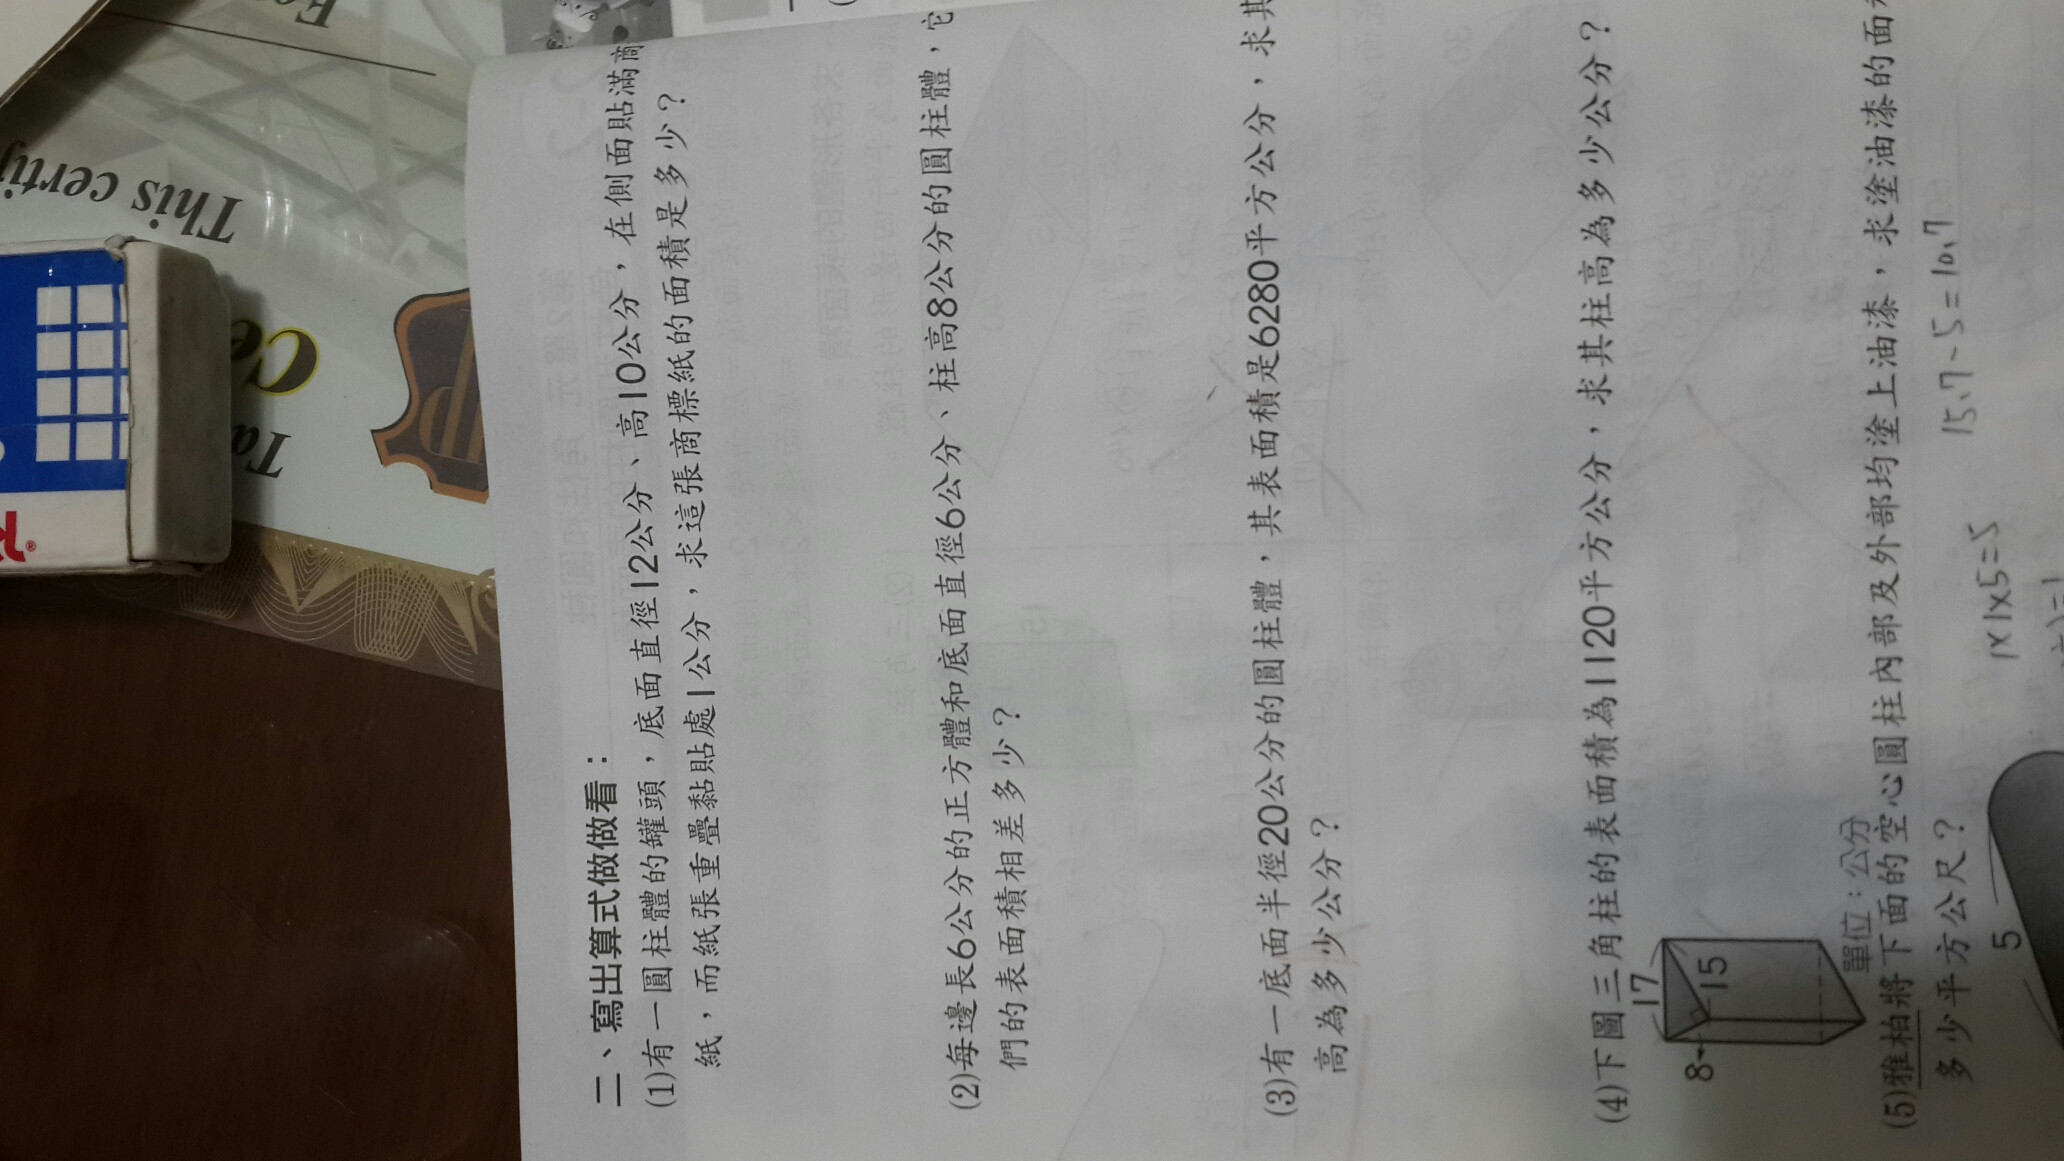 二、寫出算式做做看：
(1)有一圓柱體的罐頭，底面直徑12公分、高10公分，在側面貼滿商
紙，而紙張重疊黏貼處1公分，求這張商標紙的面積是多少？
(2)每邊長6公分的正方體和底面直徑6公分、柱高8公分的圓柱體，它
們的表面積相差多少？
(3)有一底面半徑20公分的圓柱體，其表面積是6280平方公分，求其
高為多少公分？
(4)下圖三角柱的表面積為1120平方公分，求其柱高為多少公分？
17
15
8
單位：公分
(5)雅柏將下面的空心圓柱內部及外部均塗上油漆，求塗油漆的面
多少平方公尺？
5
1×1×5=5
15.7-5=10.7
This certi
Ce
Ta